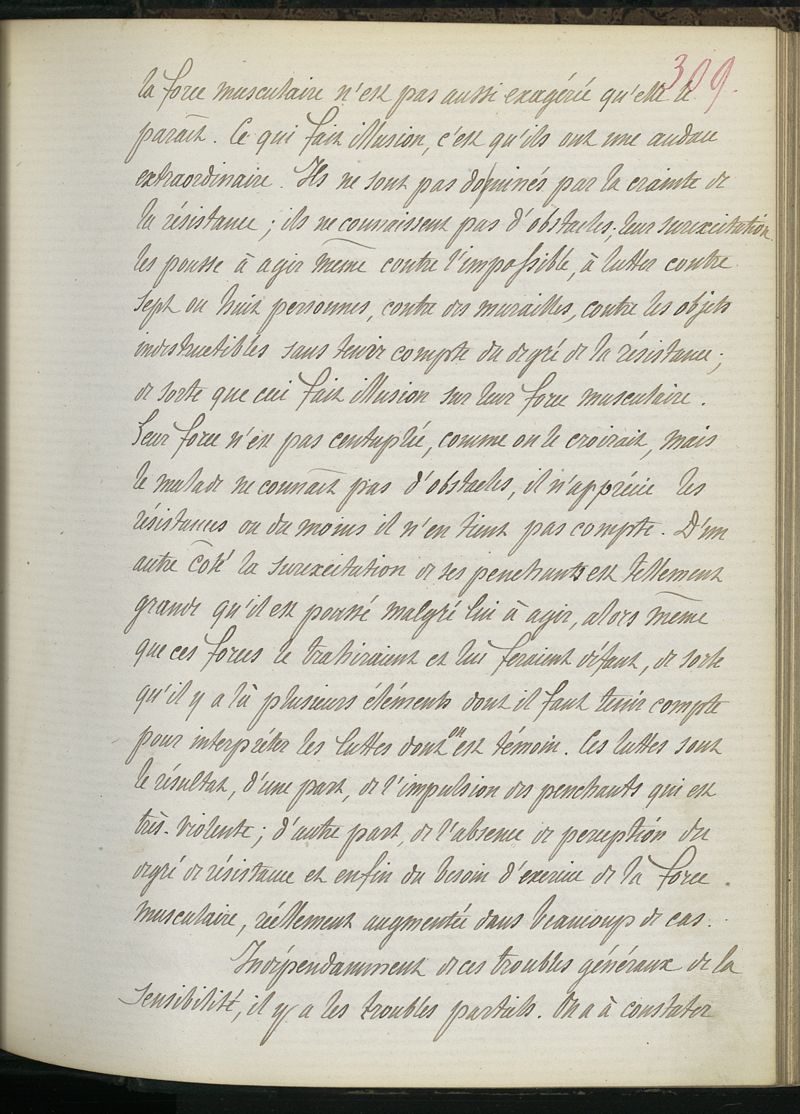 309.
la force musculaire n'est pas aussi exagérée qu'elle le
paraît. Ce qui fait illusion, c'est qu'ils ont une audace
extraordinaire. Ils ne sont pas dominés par la crainte de
la résistance ; ils ne connaissent pas d'obstacles ; leur surexcitation
les pousse à agir même contre l'impossible, à lutter contre
sept ou huit personnes, contre des murailles, contre les objets
indestructibles sans tenir compte du degré de la résistance ;
de sorte que ceci fait illusion sur leur force musculaire.
Leur force n'est pas centuplée, comme on le croirait, mais
le malade ne connaît pas d'obstacles, il n'apprécie les
résistances ou du moins il n'en tient pas compte. D'un
autre côté la surexcitation de ses penchants est tellement
grande qu'il est poussé malgré lui à agir, alors même
que ces forces le trahiraient et lui feraient défaut, de sorte
qu'il y a là plusieurs éléments dont il faut tenir compte
pour interpréter les luttes dont on est témoin. Ces luttes sont
le résultat, d'une part, de l'impulsion des penchants qui est
très-violente ; d'autre part, de l'absence de perception du
degré de résistance et enfin du besoin d'exercice de la force
musculaire, réellement augmentée dans beaucoup de cas.
Indépendamment de ces troubles généraux de la
sensibilité, il y a les troubles partiels. On a à constater